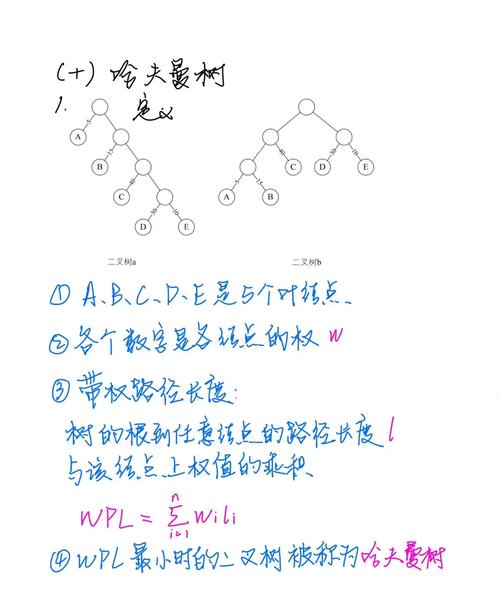 (十) 哈夫曼树
1. 定义
5
A
15
B
40
C
30
10
D
E
40
30
10
C
D
E
5
15
A
B
二叉树a
二叉树b
① A、B、C、D、E是5个叶结点、
② 各个数字是各结点的权 w
③ 带权路径长度:
树的根到任意结点的路径长度 l
与该结点上权值的乘积、
WPL = ∑ⁿᵢ₌₁ wili
④ WPL最小时的二叉树被称为哈夫曼树